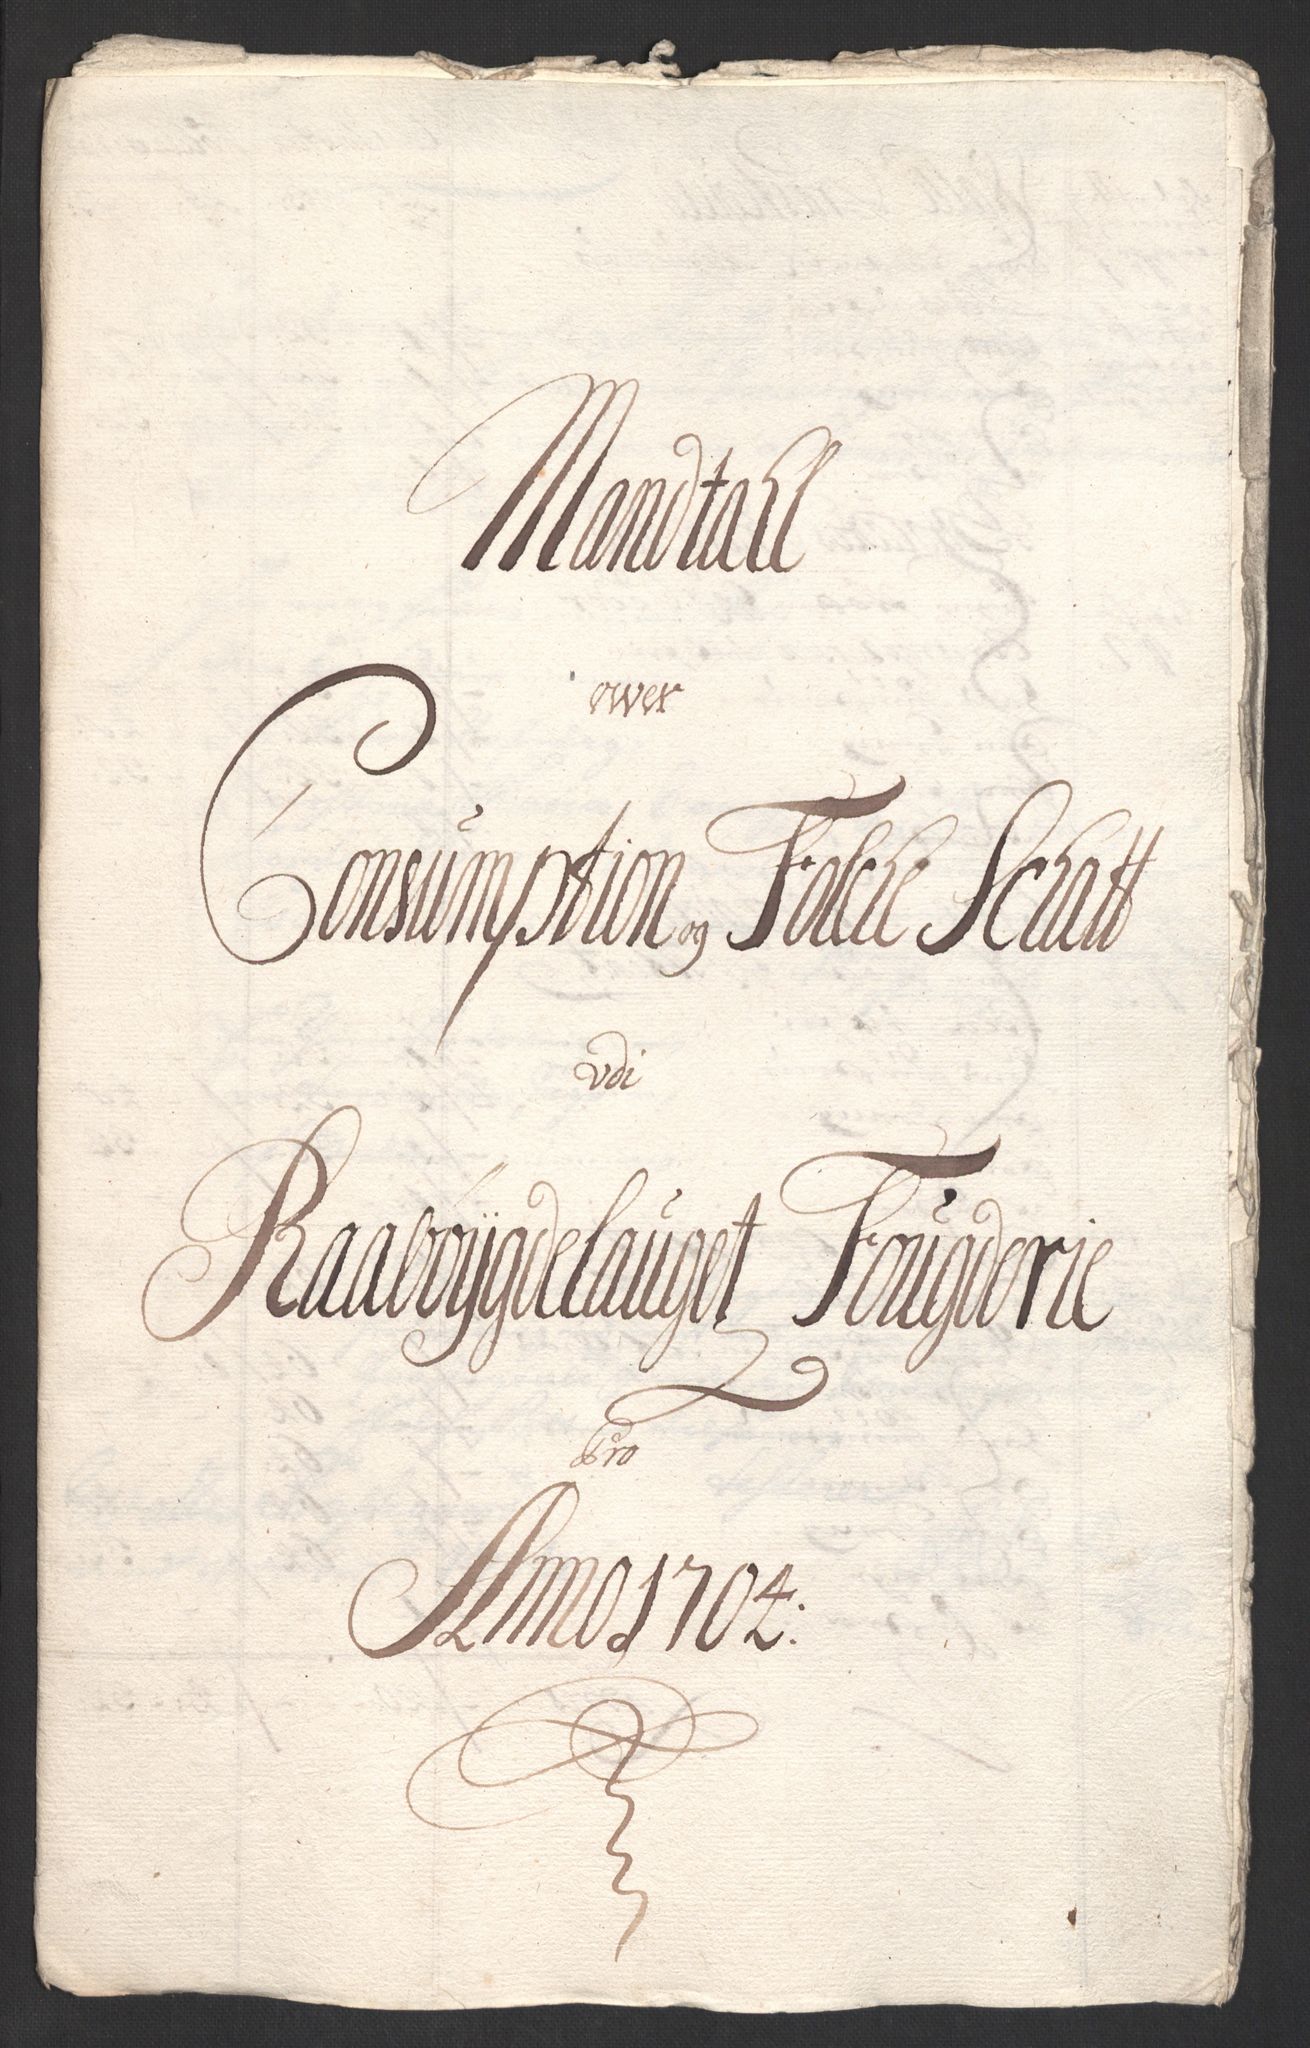 Mandtall
ower
Consumption og Folcke Schatt
vdi
Raabÿgdelauget Fougderie
pro
Anno 1704.